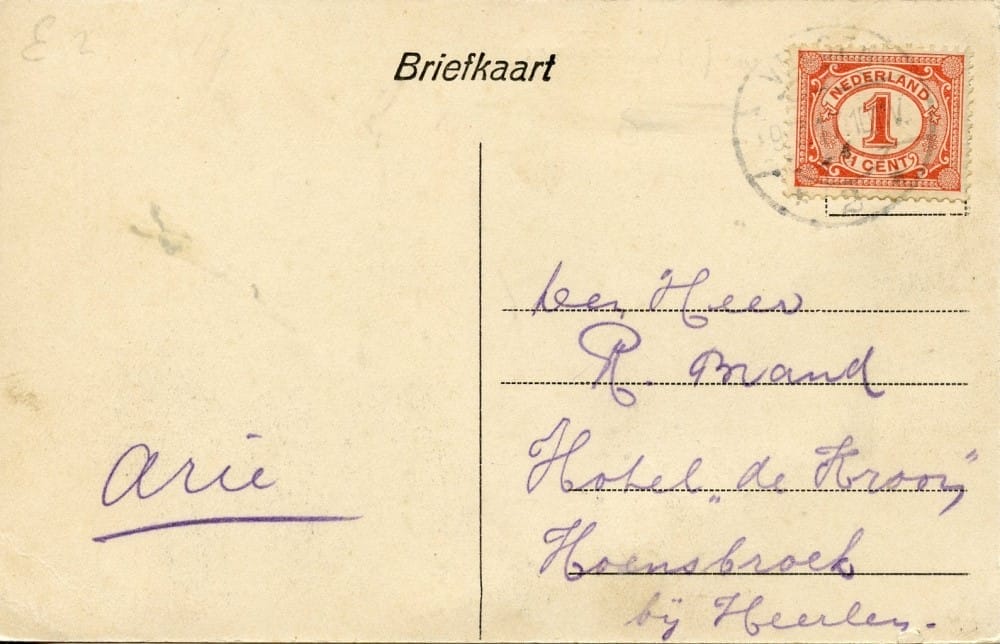 E 2
Briefkaart
NEDERLAND
1
1 CENT
den Heer
R. Brand
Hotel „de Kroon”
Hoensbroek
bij Heerlen.
Arie